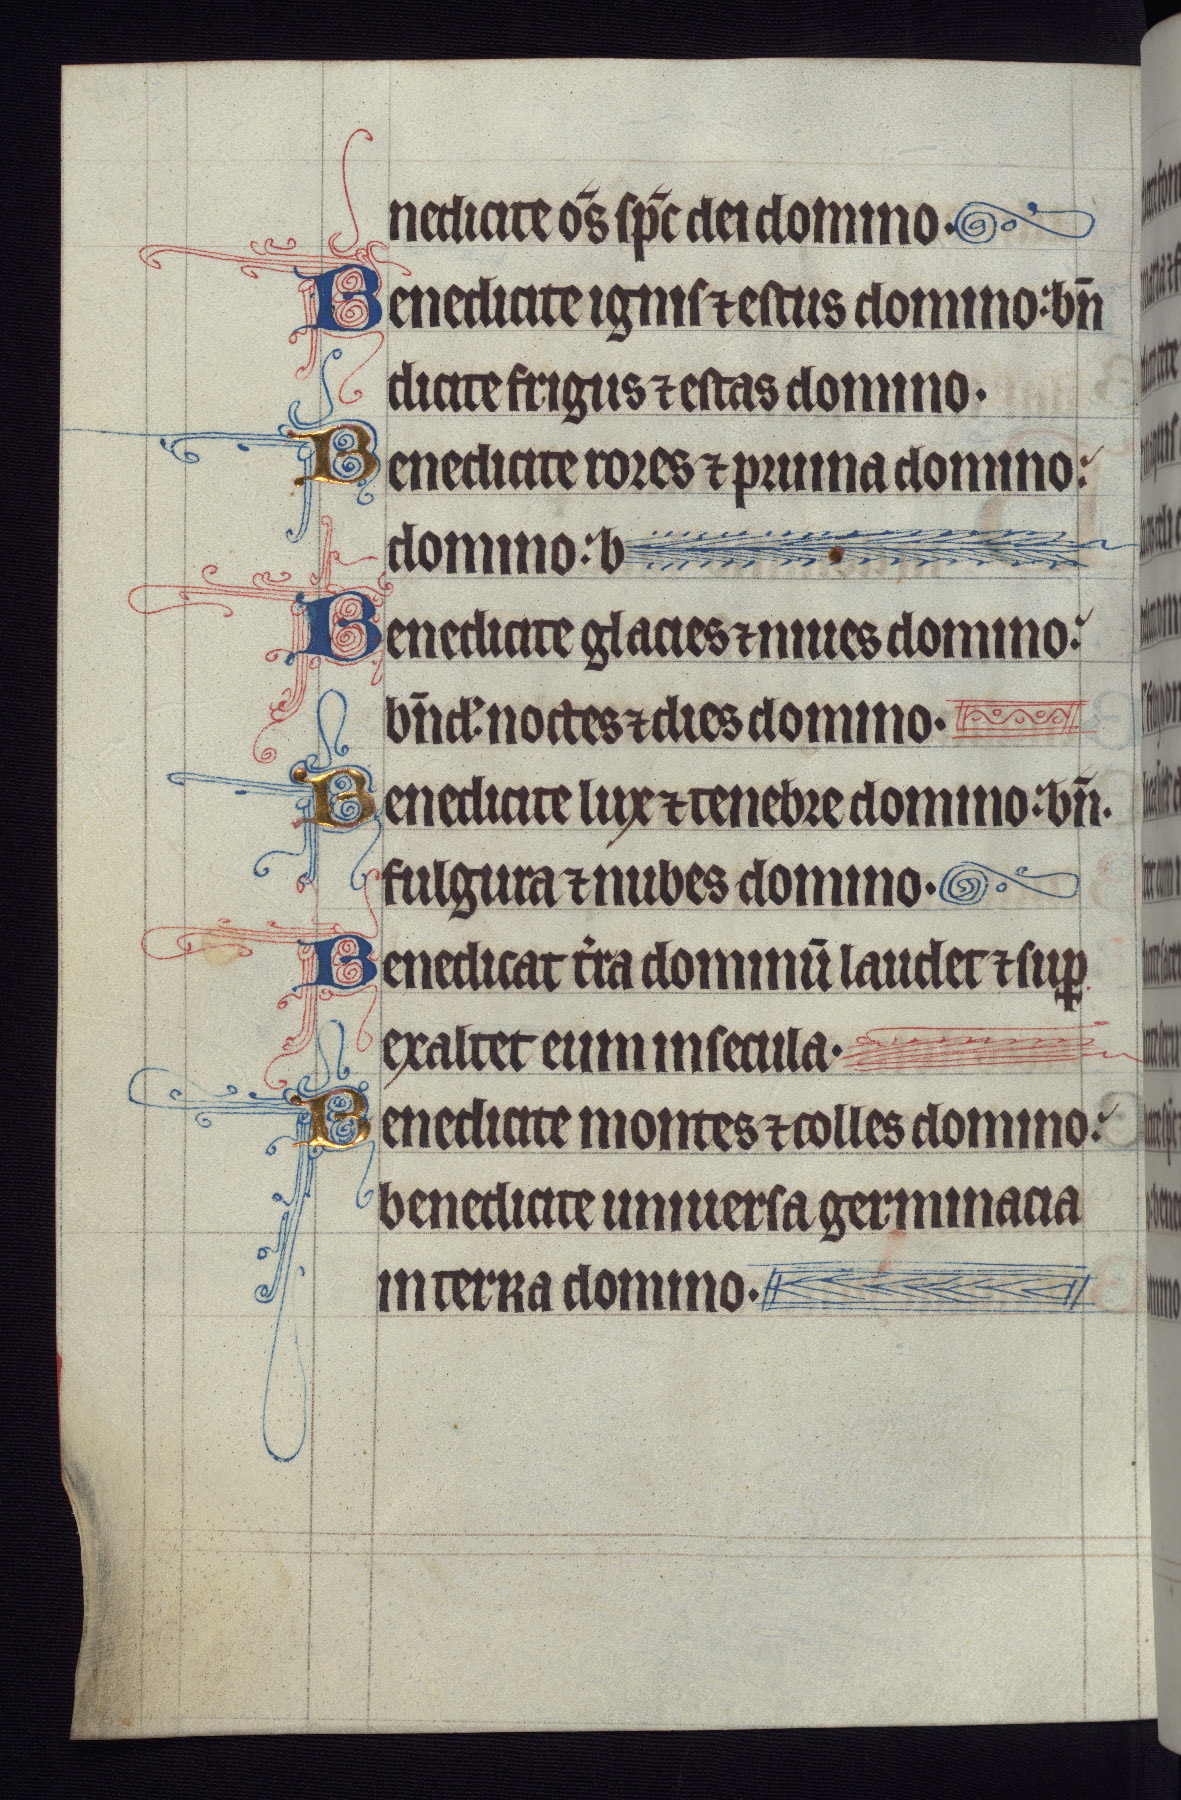 nedicite o̅s sp̅c dei domino.
Benedicite ignis ⁊ estus domino: bn̅
dicite frigus ⁊ estas domino.
Benedicite rores ⁊ pruina domino:
domino: b
Benedicite glacies ⁊ niues domino:
bn̅d. noctes ⁊ dies domino.
Benedicite lux ⁊ tenebre domino: bn̅.
fulgura ⁊ nubes domino.
Benedicat t̉ra dominu̅ laudet ⁊ suꝑ
exaltet eum in secula.
Benedicite montes ⁊ colles domino:
benedicite uniuersa germinacia
in terra domino.